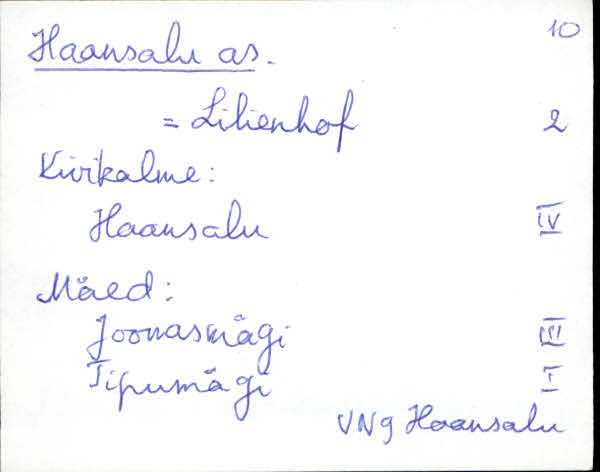 10
Haansalu as.
= Lilienhof 2
Kivikalme:
Haansalu IV
Mäed:
Joonasmägi III
Tipumägi I
VNg Haansalu